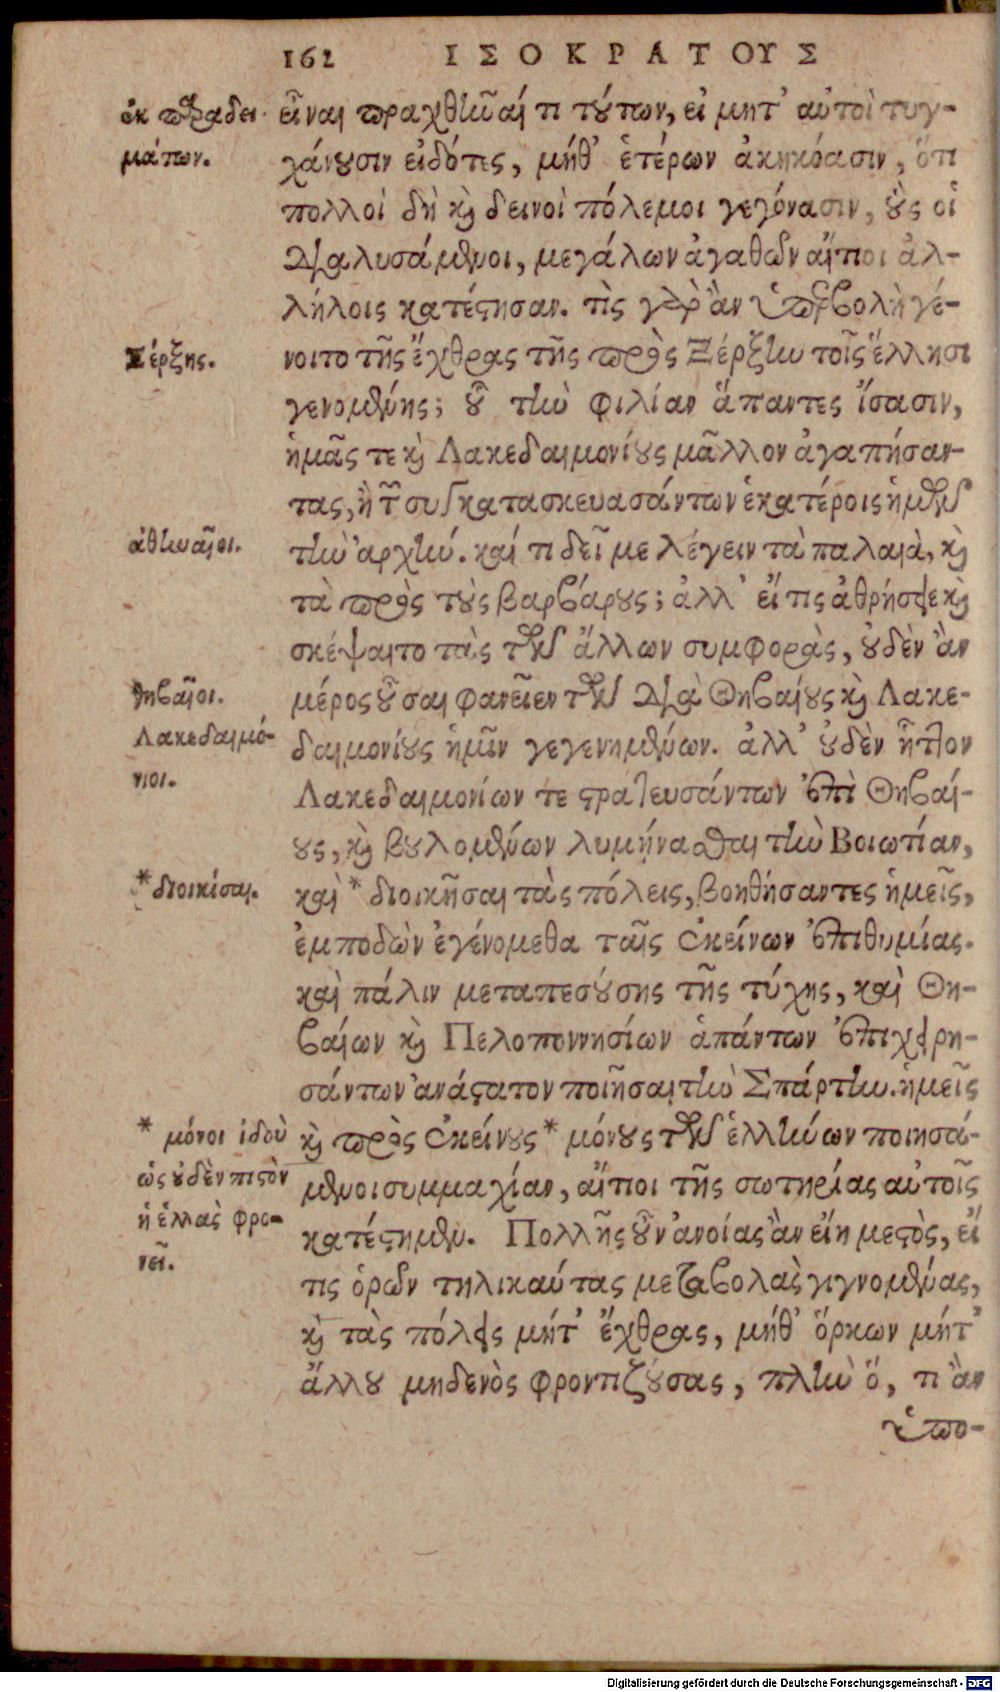 162 ΙΣΟΚΡΑΤΟΥΣ
ἐκ παραδει-
γμάτων.
εἶναι πραχθῆναί τι τούτων, εἰ μητ' αὐτοὶ τυγ-
χάνουσιν εἰδότες, μήθ' ἑτέρων ἀκηκόασιν, ὅτι
πολλοὶ δὴ καὶ δεινοὶ πόλεμοι γεγόνασιν, οὓς οἱ
διαλυσάμενοι, μεγάλων ἀγαθῶν αἴτιοι ἀλ-
λήλοις κατέστησαν. τὶς γὰρ ἂν ὑπερβολὴ γέ-
Ξέρξης.
νοιτο τῆς ἔχθρας τῆς πρὸς Ξέρξην τοῖς ἕλλησι
γενομένης; οὗ τὴν φιλίαν ἅπαντες ἴσασιν,
ἡμᾶς τε καὶ Λακεδαιμονίους μᾶλλον ἀγαπήσαν-
τας, ἢ τῶν συγκατασκευασάντων ἑκατέροις ἡμῶν
ἀθηναῖοι.
τὴν ἀρχήν. καί τι δεῖ με λέγειν τὰ παλαιὰ, καὶ
τὰ πρὸς τοὺς βαρβάρους; ἀλλ' εἴ τις ἀθρήσειε καὶ
σκέψαιτο τὰς τῶν ἄλλων συμφορὰς, οὐδὲν ἂν
θηβαῖοι.
μέρος οὖσαι φανεῖεν τῶν διὰ Θηβαίους καὶ Λακε-
Λακεδαιμό-
νιοι.
δαιμονίους ἡμῖν γεγενημένων. ἀλλ' οὐδὲν ἧττον
Λακεδαιμονίων τε στρατευσάντων ἐπὶ Θηβαί-
ους, καὶ βουλομένων λυμήνασθαι τὴν Βοιωτίαν,
*διοικίσαι.
καὶ * διοικῆσαι τὰς πόλεις, βοηθήσαντες ἡμεῖς,
ἐμποδὼν ἐγένομεθα ταῖς ἐκείνων ἐπιθυμίας.
καὶ πάλιν μεταπεσούσης τῆς τύχης, καὶ Θη-
βαίων καὶ Πελοποννησίων ἁπάντων ἐπιχειρη-
σάντων ἀνάστατον ποιῆσαι τὴν Σπάρτην. ἡμεῖς
* μόνοι ἰδοὺ
ὡς οὐδὲν πιστὸν
ἡ ἑλλὰς φρο-
νεῖ.
καὶ πρὸς ἐκείνους * μόνους τῶν ἑλλήνων ποιησά-
μενοι συμμαχίαν, αἴτιοι τῆς σωτηρίας αὐτοῖς
κατέστημεν. Πολλῆς οὖν ἀνοίας ἂν εἴη μεστὸς, εἴ
τις ὁρῶν τηλικαύτας μεταβολὰς γιγνομένας,
καὶ τὰς πόλεις μήτ' ἔχθρας, μήθ' ὅρκων μήτ'
ἄλλου μηδενὸς φροντιζούσας, πλὴν ὅ, τι ἂν
ὑπο-
Digitalisierung gefördert durch die Deutsche Forschungsgemeinschaft - DFG